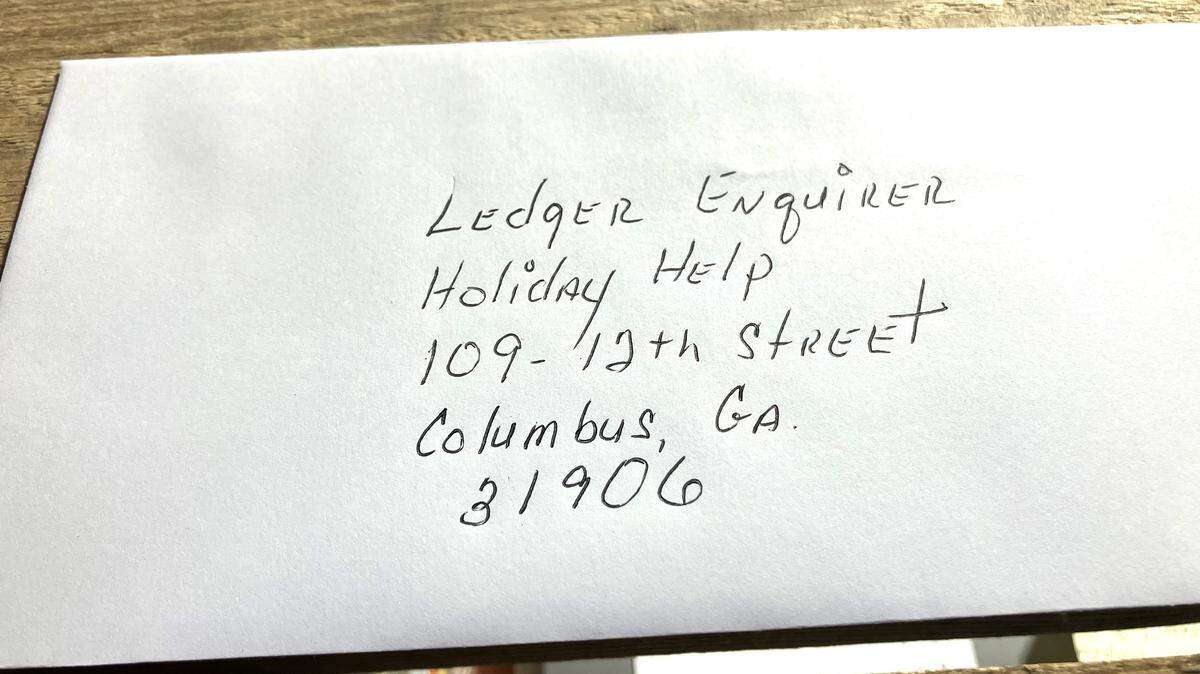 Ledger Enquirer
Holiday Help
109- 12th Street
Columbus, GA.
31906